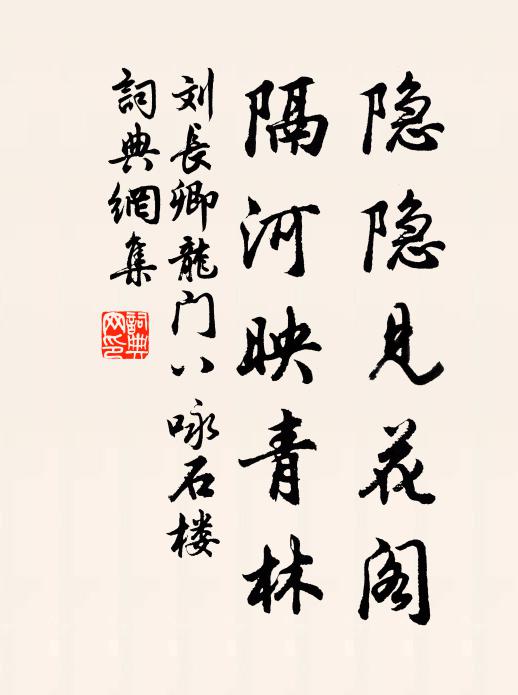 隐隐见花阁
隔河映青林
刘長卿龍门八咏石楼
詞典網集
詞典網印